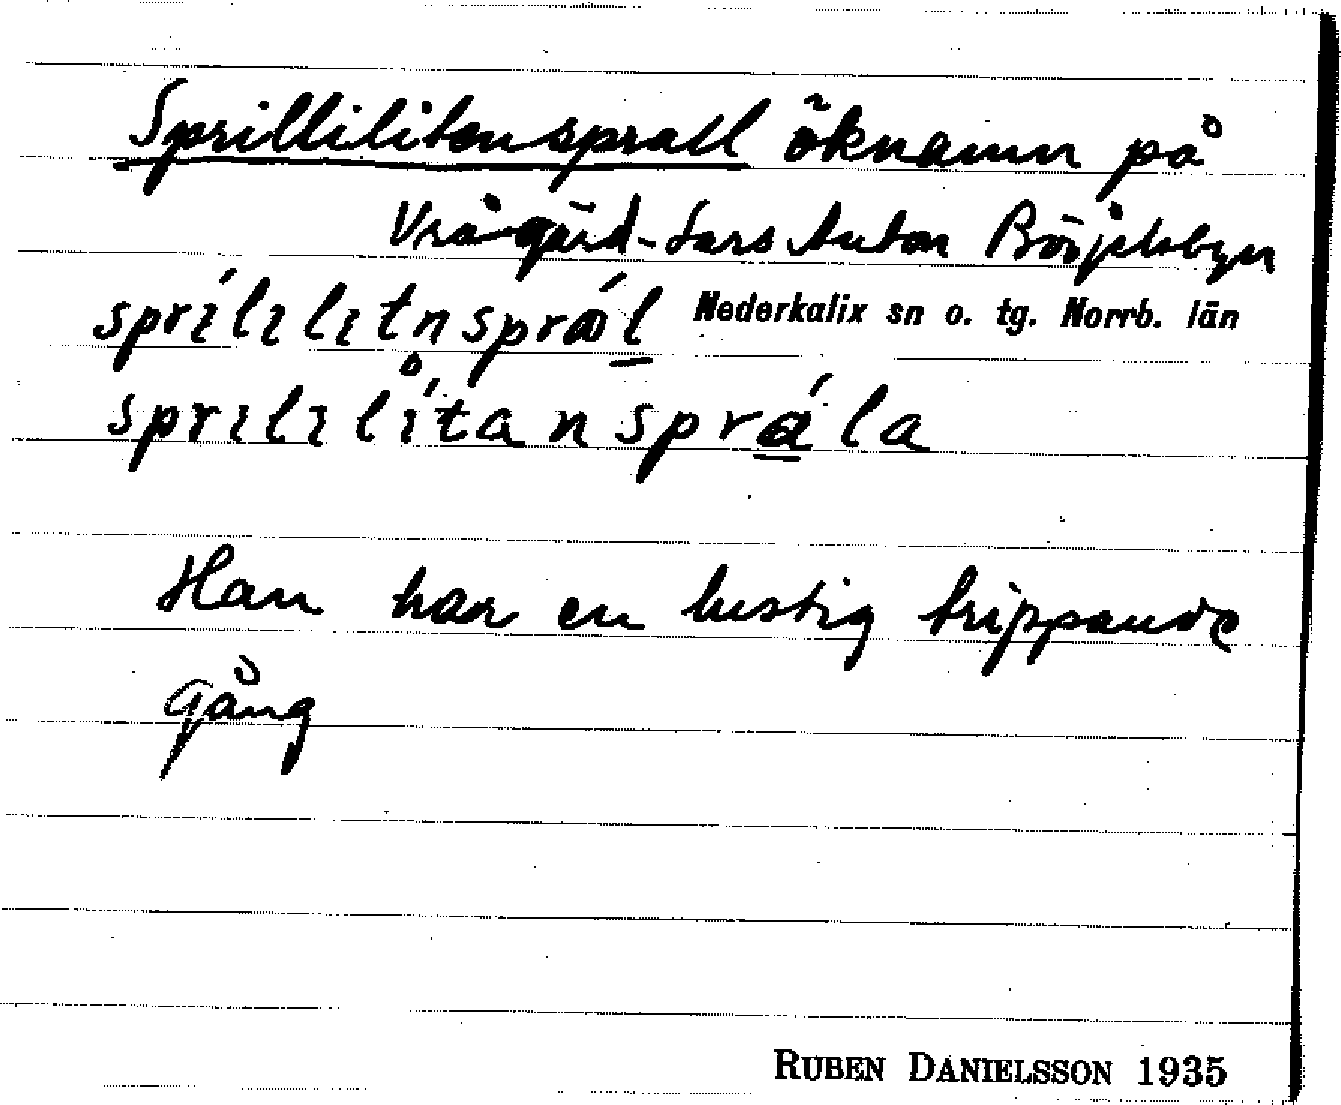 Sprillilitensprall öknamn på
Vrågärd-Lars Anton Börjelsbyn
Nederkalix sn o. tg. Norrb. län
sprílılıtnsprál
sprılılítanspråla
Han har en lustig trippande
gång
RUBEN DANIELSSON 1935